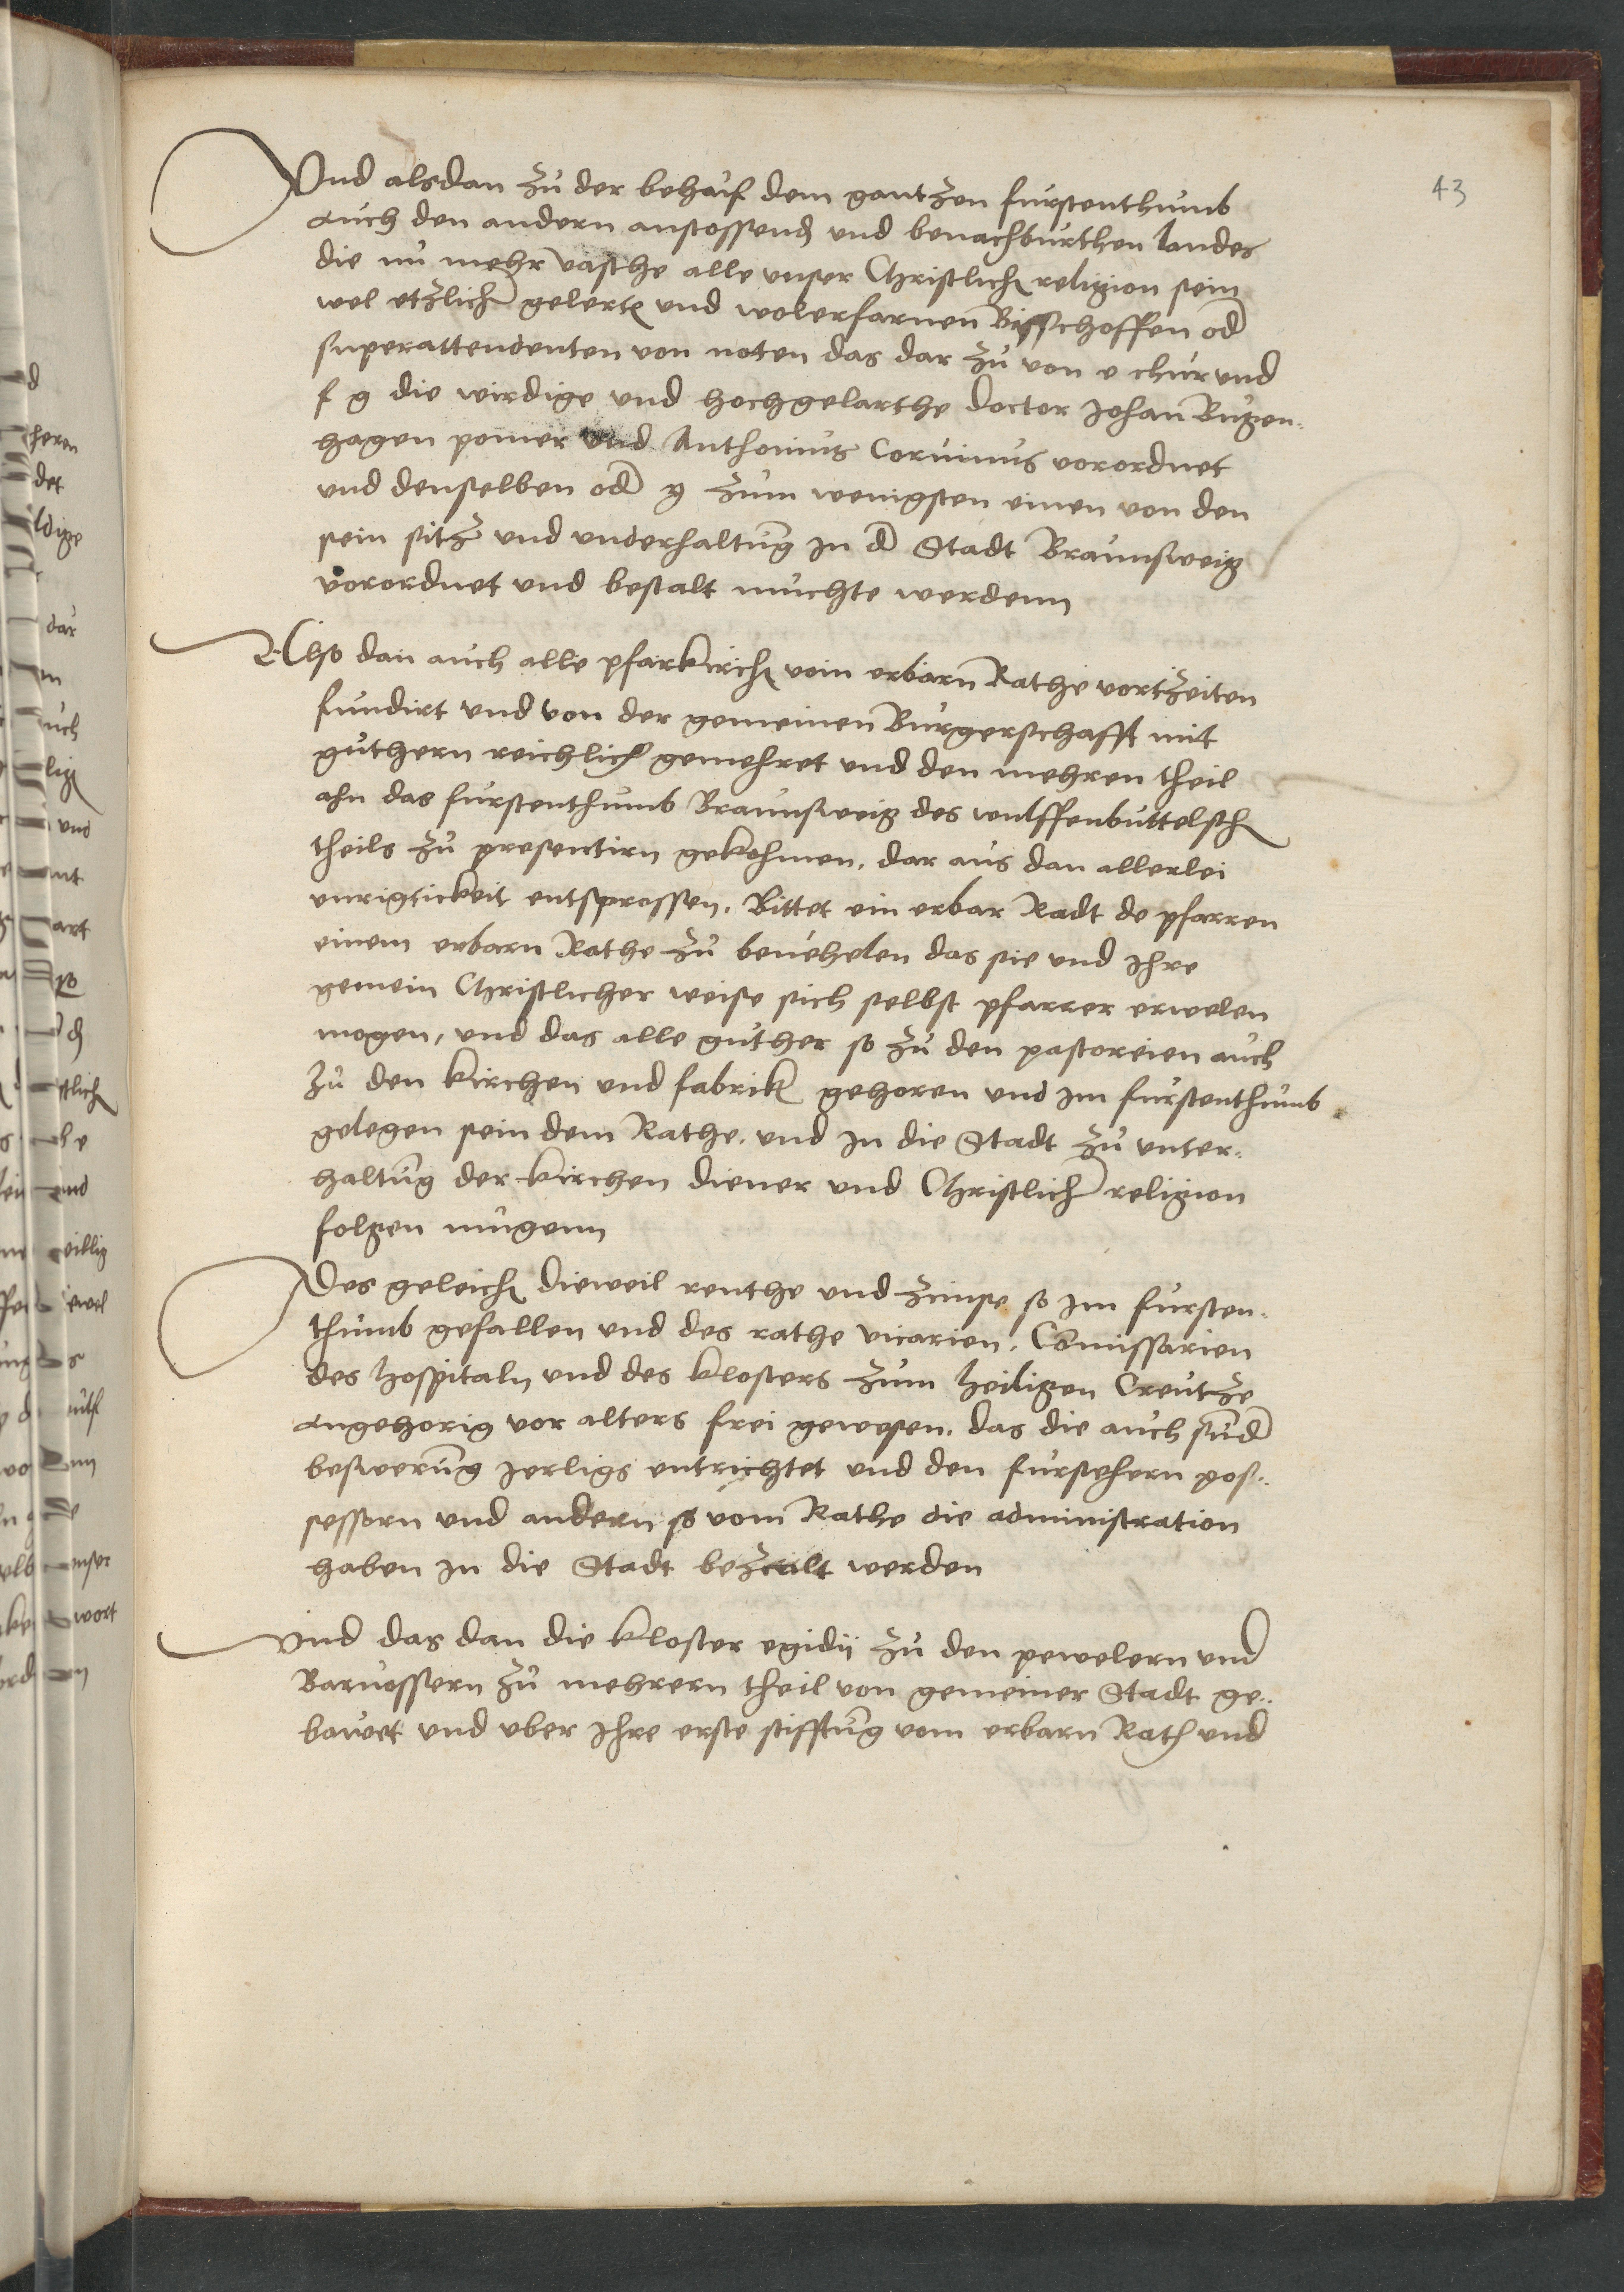 43
Und alsdan zu der behuf dem gantzen furstenthumb
auch den andern anstossend und benachburthen landes
die nu mehr vasthe alle unser Christlich religion sein
wol etzlich gelerte und wolerfarnen Bisschoffen od
superattendenten von noten das dar zu von e chur und
f g die wirdige und hochgelarthe doctor Johan Bugen-
hagen pomer und Anthonius Corvinus vorordnet
und denselben od zum wenigsten einen von den
sein sitz und underhaltung in d Stadt Braunsweig
vorordnet und bestalt muchte werdenn
Also dan auch alle pfarkirch vom erbarn Rathe vortzeiten
fundirt und von der gemeinen Burgerschafft mit
guthern reichlich gemehret und den mehren theil
ahn das furstenthumb Braunsweig des wulffenbuttelsch
theils zu presentirn gekohmen. dar aus dan allerlei
unrigtickeit entsprossen. Bittet ein erbar Radt de pfarren
einem erbarn Rathe zu bevehelen das sie und Ihre
gemein Christlicher weise sich selbst pfarrer erwelen
mogen, und das alle guther so zu den pastoreien auch
zu den kirchen und fabrik gehoren und im furstenthumb
gelegen sein dem Rathe. und in die Stadt zu unter-
haltung der kirchen diener und Christlich religion
folgen mugenn
Des geleich dieweil renthe und zinse so im fursten-
thumb gefallen und des rathe vicarien. Comissarien
des hospitaln und des klosters zum heiligen Creutze
angehorig vor alters frei gewesen. das die auch sund
beswerung jerligs entrichtet und den fursehern pos-
sessorn und andern so vom Rathe die administration
haben in die Stadt bezcalt werden
Und das dan die kloster egidii zu den pewelern und
Barvossern zu mehrern theil von gemeiner Stadt ge-
bawet und uber ihre erste stifftung vom erbarn Rath und